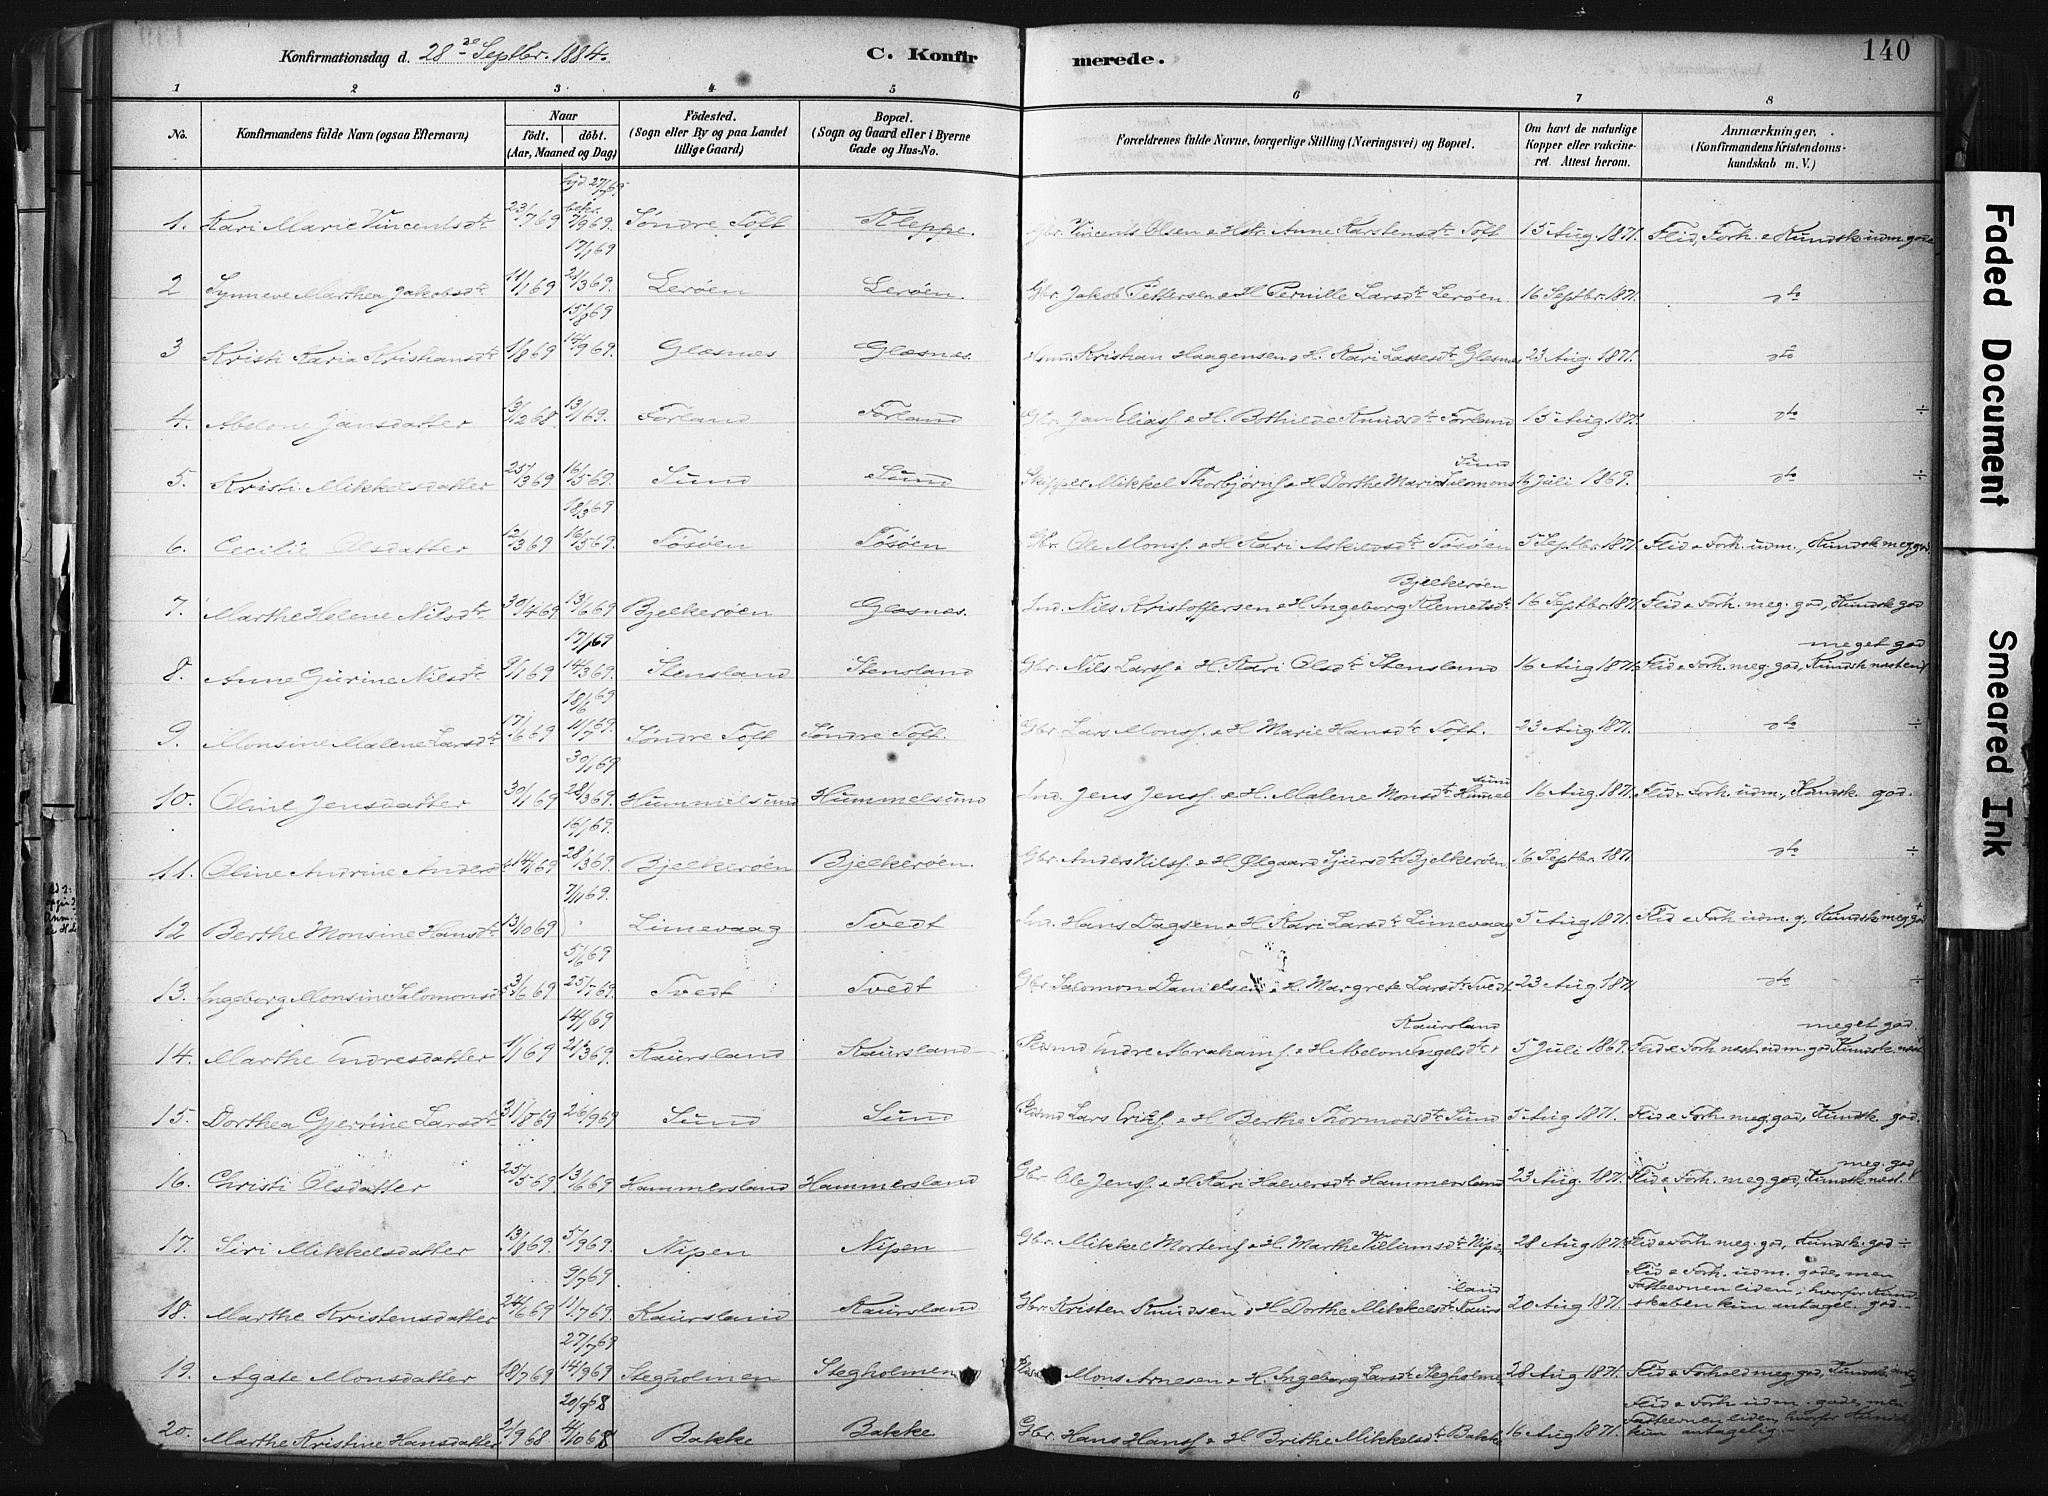 140
Konfirmationsdag d. 28de Septbr. 1884.
C. Konfirmerede.
1 2 3 4 5 6 7 8
No.
Konfirmandens fulde Navn (ogsaa Efternavn)
Naar
födt. döbt.
(Aar, Maaned og Dag)
Födested.
(Sogn eller By og paa Landet
tillige Gaard)
Bopæl.
(Sogn og Gaard eller i Byerne
Gade og Hus-No.
Forældrenes fulde Navne, borgerlige Stilling (Næringsvei) og Bopæl.
Om havt de naturlige
Kopper eller vakcine-
ret. Attest herom.
Anmærkninger.
(Konfirmandens Kristendoms-
kundskab m. V.)
1. Kari Marie Vincentsdtr 23/7 69 hjd 27/7 69. beks. 7/9 69. Söndre Toft Kleppe. Gbr. Vincents Olsen & Hstr. Anne Karstensdtr Toft 15 Aug. 1871. Flid, Forh. & Kundsk. udm. gode
2 Synneve Marthea Jakobsdtr 11/1 69 17/1 69 21/3 69. Leröen Leröen. Gbr. Jakob Pettersen & H Pernille Larsdtr Leröen 16 Septbr. 1871. dto
3 Kristi Karia Kristiansdtr 1/8 69 15/8 69 14/9 69. Glæsnæs Glæsnæs. Kristian Haagensen & H. Kari Lassesdtr Glesnæs 23 Aug. 1871. dto
4. Abelone Jansdatter 13/12 68 13/1 69. Forland Forland Gbr. Jan Eliass. & H. Bothilde Knudsdtr Forland 15 Aug. 1871. dto ÷
5. Kristi Mikkelsdatter 25/3 69 16/5 69. Sund Sund Skipper Mikkel Thorbjörns. & H Dorthe Marie Salomons Sund 16 Juli 1869. dto ÷
6. Cecilie Olsdatter 12/3 69 18/3 69 16/5 69. Tösöen Tösöen Gbr. Ole Mons. & H Kari Askildsdtr Tösöen 5 Septbr. 1871. Flid & Forh. udm., Kundsk. meg. god.
7. Marthe Helene Nilsdtr 30/4 69 13/6 69 Bjelkeröen Glæsnes. Ind. Nils Kristoffersen & H Ingeborg Klemetsdtr Bjelkeröen 16 Septbr. 1871 Flid & Forh. meg. god, Kundsk. god
8. Anne Gurine Nilsdtr 9/1 69 17/1 69 14/3 69. Stensland Stensland Gbr. Nils Larss. & H Kari Olsdtr Stensland 16 Aug 1871. Flid & Forh. meg. god, Kundsk. næsten meget god
9. Monsine Malene Larsdtr 17/6 69 18/6 69 11/7 69. Söndre Toft Söndre Toft. Gbr. Lars Mons. & H Marie Hansdtr Toft. 23 Aug. 1871. dto ÷
10. Oline Jensdatter 30/1 69 30/1 69 28/3 69. Hummelsund Hummelsund Ind. Jens Jens. & H. Malene Monsdtr Hummelsund 16 Aug. 1871. Flid & Forh. udm., Kundsk. god.
11. Oline Andrine Andersdtr 14/1 69 16/1 69. 28/3 69. Bjelkeröen Bjelkeröen. Gbr Anders Nils. & H Ölgaard Sjursdtr Bjelkeröen 16 Septbr. 1871. dto ÷
12 Berthe Monsine Hansdtr 13/10 69 7/11 69. Limevaag Tvedt Ind. Hans Dagsen & H. Kari Larsdtr Limevaag 5 Aug 1871. Flid & Forh. udm. g. Kundsk. meg. god
13. Ingeborg Monsine Salomonsdtr 3/6 69 5/6 69 25/7 69. Tvedt Tvedt Gbr Salomon Danielsen & H. Margrete Larsdtr Tvedt 23 Aug 1871 dto ÷
14. Marthe Endresdatter 1/1 69 14/1 69 21/3 69. Kaursland Kaursland Plsmd Endre Abrahams. & H. Abelone Engelsdtr Kaursland 5 Juli 1869. Flid & Forh. næst. udm. god Kundsk. næst. meget god.
15. Dorthea Gjertine Larsdtr. 31/8 69 26/9 69 Sund Sund Plsmd Lars Eriks. & H Berthe Thormodsdtr Sund 5 Aug. 1871. Flid & Forh. meg. god, Kundsk. god.
16. Christi Olsdatter 25/5 69. 13/6 69 Hammersland Hammersland Gbr. Ole Jens. & H Kari Halversdtr Hammersland 23 Aug. 1871. Flid & Forh. meg. god, Kundsk. næst. meg. god
17. Siri Mikkelsdatter 13/8 69. 5/9 69. Nipen Nipen Gbr. Mikkel Mortens. & H. Marthe Villumsdtr Nipen 28 Aug 1871. Flid & Forh. meg. god, Kundsk. god ÷
18. Marthe Kristensdatter 24/6 69 9/7 69 11/7 69. Kaursland Kaursland Gbr. Kristen Knudsen & H Dorthe Mikkelsdtr Kaursland 20 Aug 1871. Flid & Forh. udm. gode, men Fatteevnen liden, hvorfor Kundskaben kun antagel. god.
19. Agate Monsdatter 18/7 69 27/7 69 14/9 69 Stegholmen Stegholmen Mons Arnesen & H. Ingeborg Larsdtr Stegholmen 28 Aug 1871. Flid & Forhold meg. god, Kundsk. antag.
20. Marthe Kristine Hansdatter 2/9 68 20/9 68 4/10 68 Bakke Bakke. Gbr. Hans Hans. & H Brithe Mikkelsdtr Bakke 16 Aug 1871. Flid & Forh. udm. gode, men Fatteevnen liden, hvorfor Kundsk. kun antagelig.
Faded Document
Smeared Ink